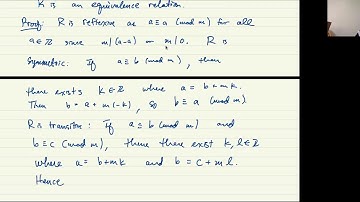 R is an equivalence relation.
Proof: R is reflexive as a ≡ a (mod m) for all
a ∈ ℤ since m | (a-a) or m | 0. R is
Symmetric: If a ≡ b (mod m), then
there exists k ∈ ℤ where a = b + mk.
Then b = a + m(-k), so b ≡ a (mod m).
R is transitive: If a ≡ b (mod m) and
b ≡ c (mod m), then there exist k, l ∈ ℤ
where a = b + mk and b = c + ml.
Hence